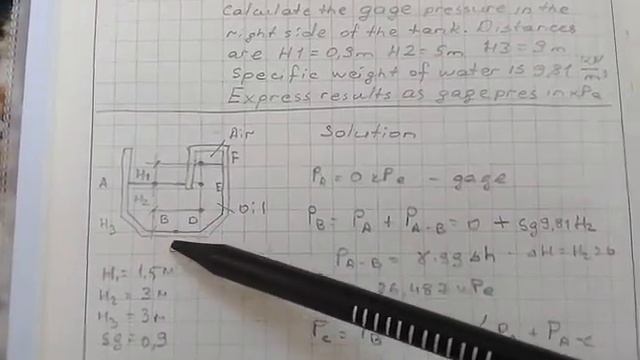 calculate the gage pressure in the
right side of the tank. Distances
are H1 = 0,9m H2 = 5m H3 = 9m
Specific weight of water is 9,81 kN/m³
Express results as gage pres in kPa
Air
Solution
F
H1
A
E
P_A = 0 kPa - gage
H2
Oil
B D
H3
P_B = P_A + P_A-B = 0 + Sg 9,81 H2
P_A-B =
H1 = 1,5 m
H2 = 3 m
26,487 kPa
H3 = 3 m
Sg = 0,9
P_c =
P_A + P_A-c